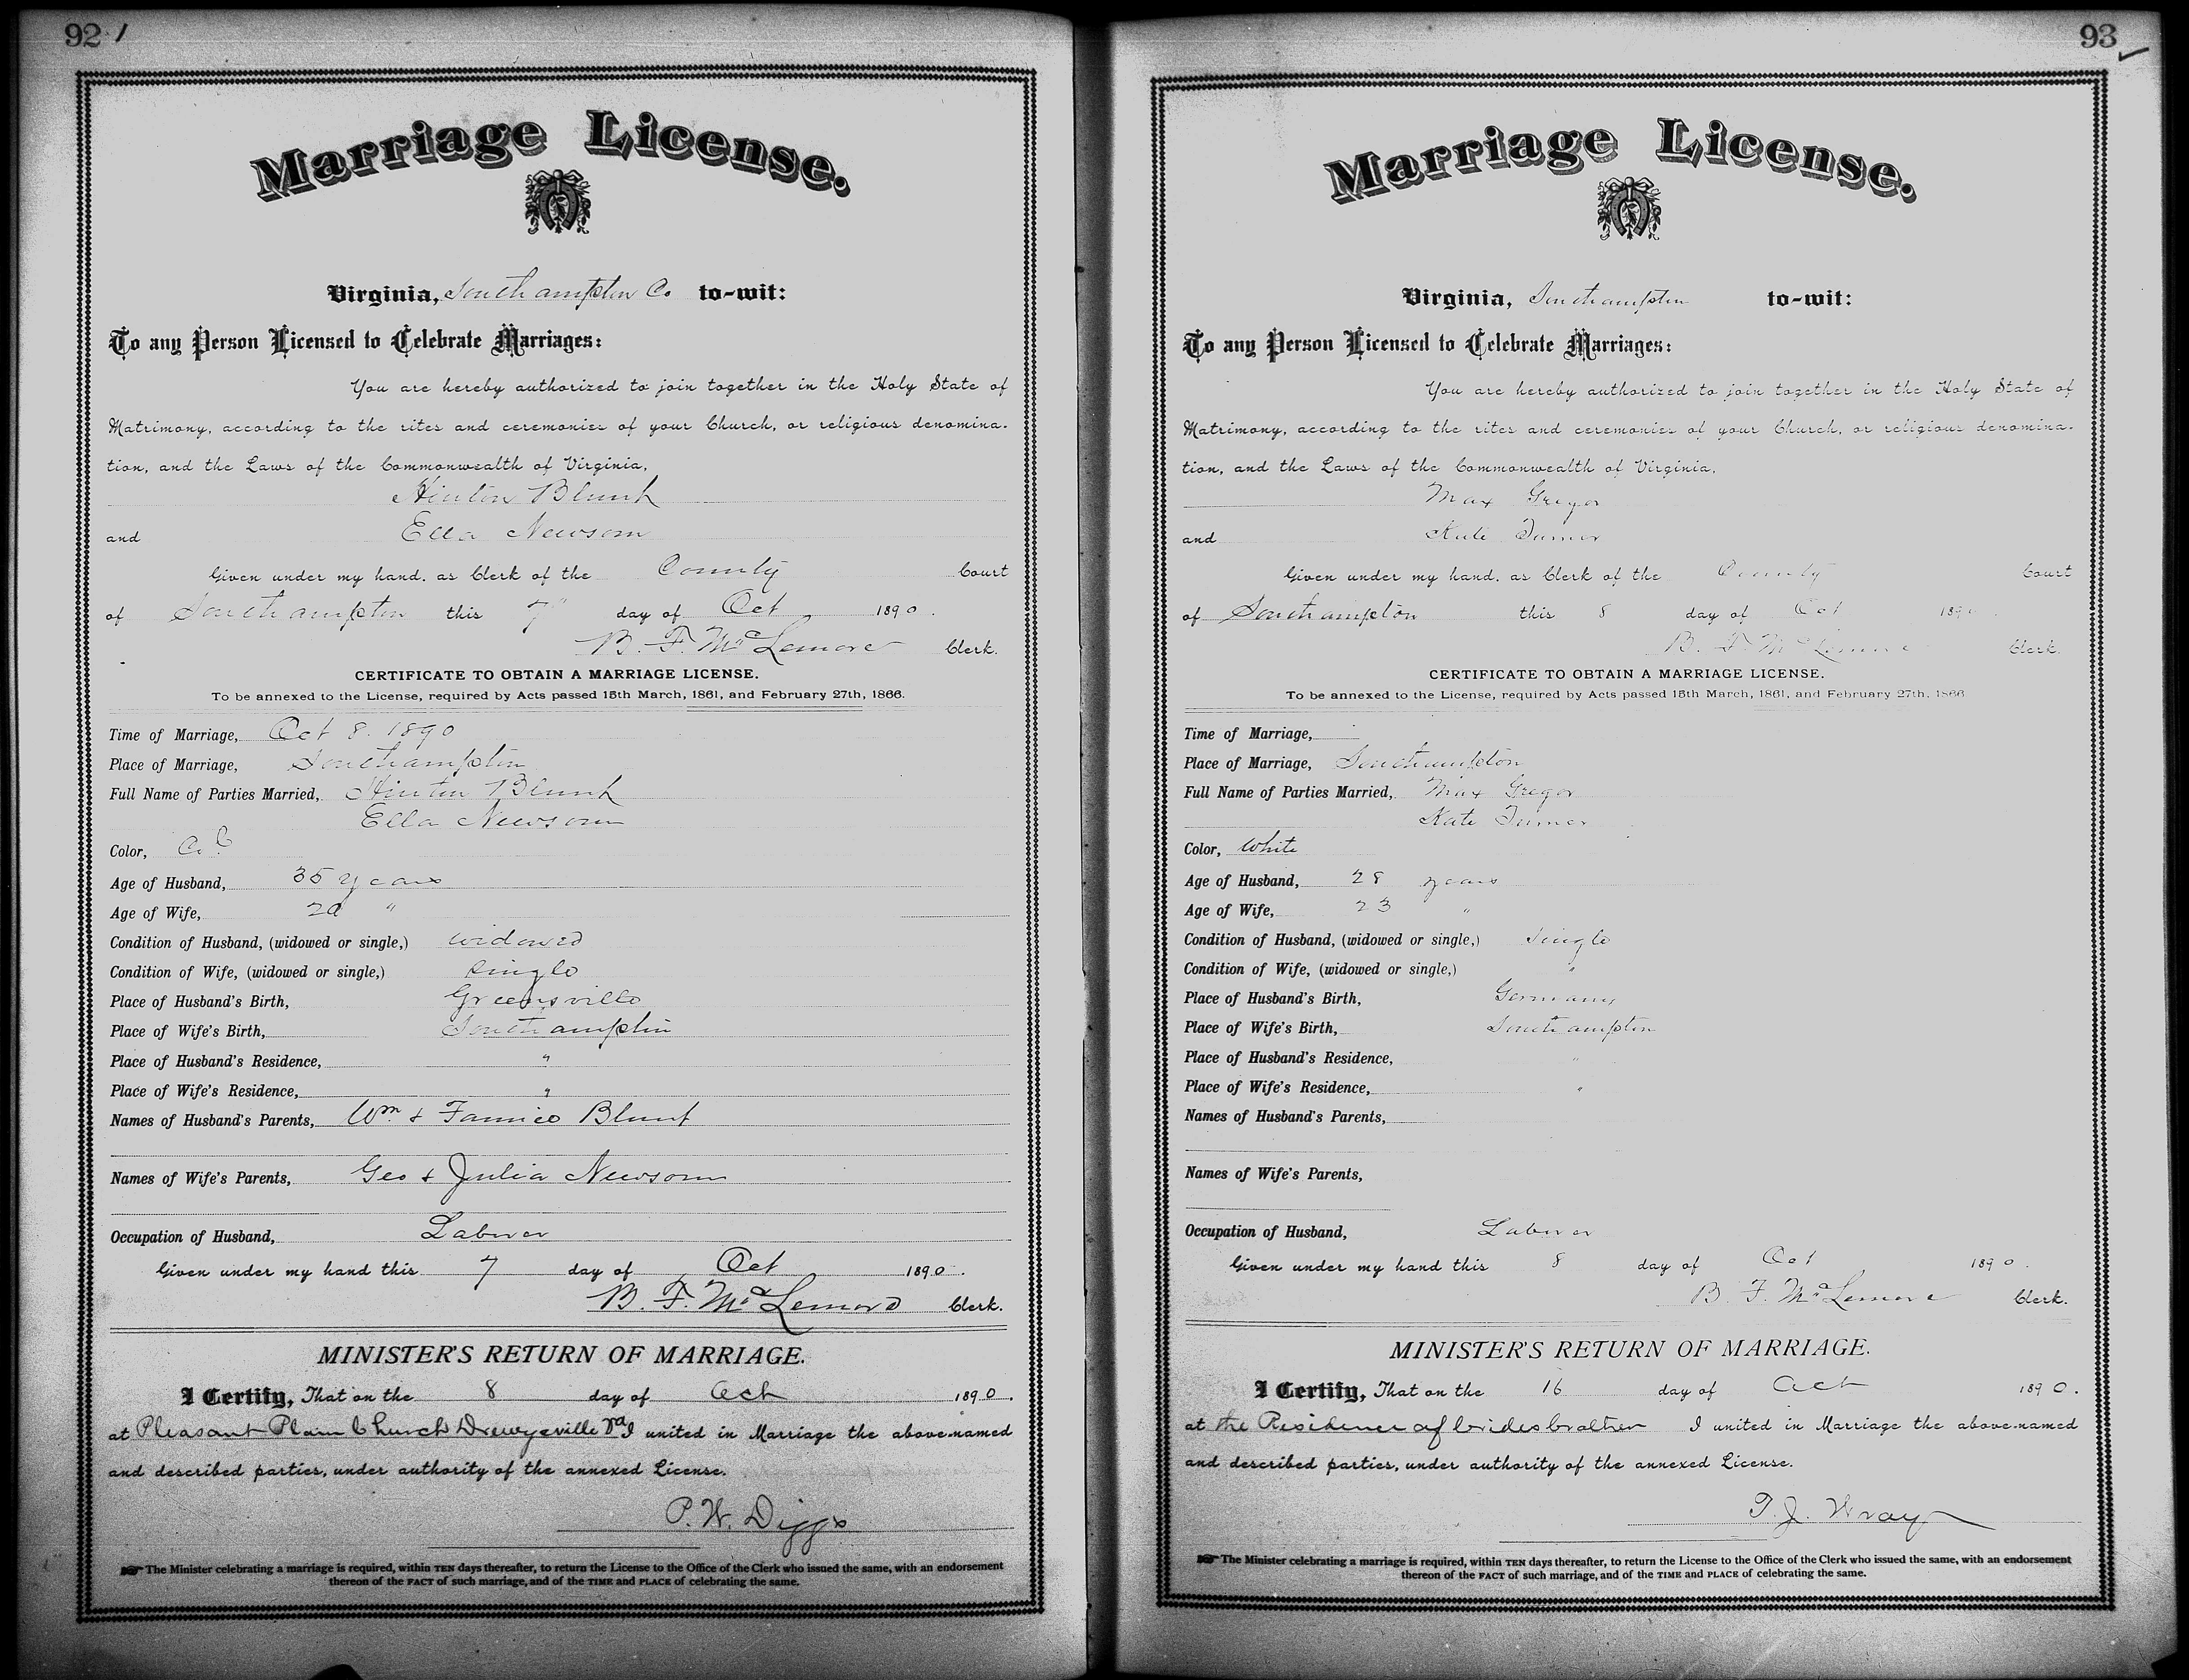 92
Marriage License.
Virginia, Southampton Co to-wit:
To any Person Licensed to Celebrate Marriages:
You are hereby authorized to join together in the Holy State of
Matrimony, according to the rites and ceremonies of your Church, or religious denomina-
tion, and the Laws of the Commonwealth of Virginia,
Hinton Blunt
and Ella Newsom
Given under my hand, as Clerk of the County Court
of Southampton this 7" day of Oct 1890.
B. F. McLemore Clerk.
CERTIFICATE TO OBTAIN A MARRIAGE LICENSE.
To be annexed to the License, required by Acts passed 15th March, 1861, and February 27th, 1866.
Time of Marriage, Oct 8. 1890
Place of Marriage, Southampton
Full Name of Parties Married, Hinton Blunt
Ella Newsom
Color, Col
Age of Husband, 35 years
Age of Wife, "
Condition of Husband, (widowed or single,) widowed
Condition of Wife, (widowed or single,) single
Place of Husband's Birth, Greensville
Place of Wife's Birth, Southampton
Place of Husband's Residence, "
Place of Wife's Residence, "
Names of Husband's Parents, Wm & Fannie Blunt
Names of Wife's Parents, Geo & Julia Newsom
Occupation of Husband, Laborer
Given under my hand this 7 day of Oct 1890.
B. F. McLemore Clerk.
MINISTER'S RETURN OF MARRIAGE.
I Certify, That on the 8 day of Oct 1890.
at Pleasant Plain Church Drewyeville Va I united in Marriage the above-named
and described parties, under authority of the annexed License.
P. W. Diggs
The Minister celebrating a marriage is required, within TEN days thereafter, to return the License to the Office of the Clerk who issued the same, with an endorsement
thereon of the FACT of such marriage, and of the TIME and PLACE of celebrating the same.
93
Marriage License.
Virginia, Southampton to-wit:
To any Person Licensed to Celebrate Marriages:
You are hereby authorized to join together in the Holy State of
Matrimony, according to the rites and ceremonies of your Church, or religious denomina-
tion, and the Laws of the Commonwealth of Virginia,
Max Gregor
and Kate Turner
Given under my hand, as Clerk of the County Court
of Southampton this 8 day of Oct 1890
B. F. McLemore Clerk.
CERTIFICATE TO OBTAIN A MARRIAGE LICENSE.
To be annexed to the License, required by Acts passed 15th March, 1861, and February 27th, 1866
Time of Marriage,
Place of Marriage, Southampton
Full Name of Parties Married, Max Gregor
Kate Turner
Color, White
Age of Husband, 28 years
Age of Wife, 23 "
Condition of Husband, (widowed or single,) single
Condition of Wife, (widowed or single,) "
Place of Husband's Birth, Germany
Place of Wife's Birth, Southampton
Place of Husband's Residence, "
Place of Wife's Residence, "
Names of Husband's Parents,
Names of Wife's Parents,
Occupation of Husband, Laborer
Given under my hand this 8 day of Oct 1890.
B. F. McLemore Clerk.
MINISTER'S RETURN OF MARRIAGE.
I Certify, That on the 16 day of Oct 1890.
at the Residence of brides brother I united in Marriage the above-named
and described parties, under authority of the annexed License.
T. J. Wray
The Minister celebrating a marriage is required, within TEN days thereafter, to return the License to the Office of the Clerk who issued the same, with an endorsement
thereon of the FACT of such marriage, and of the TIME and PLACE of celebrating the same.